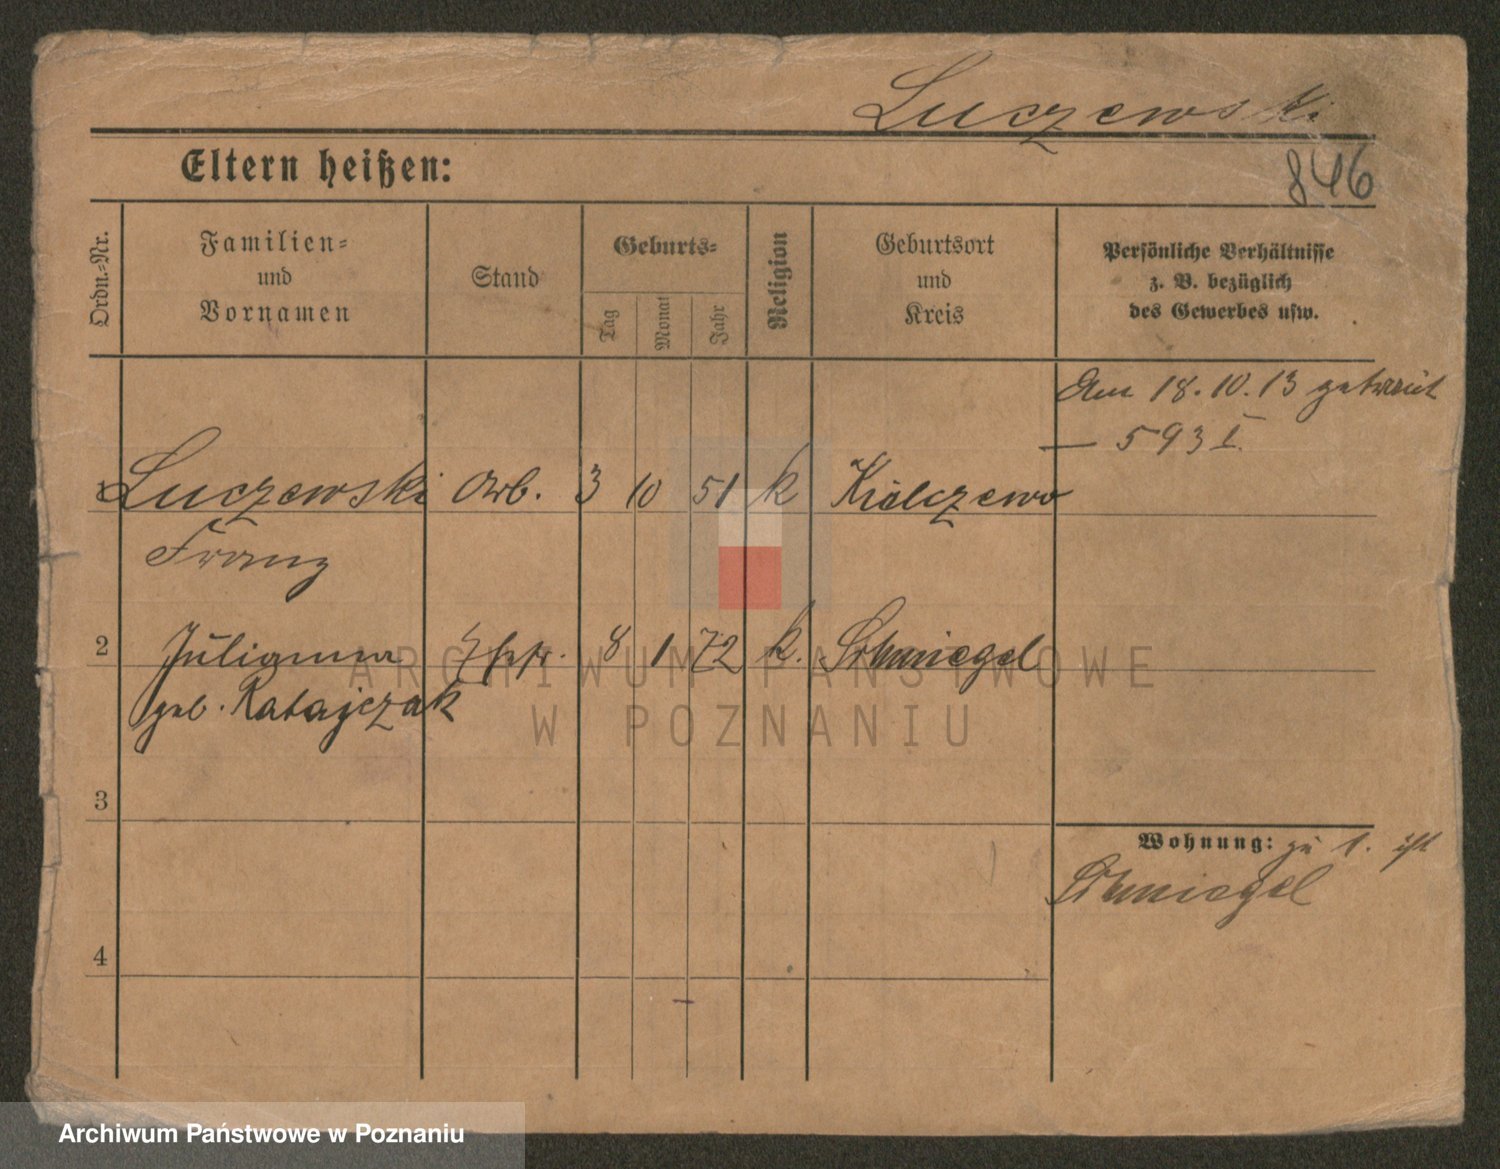 Luczewski
Eltern heißen:
846
Ordn.-Nr.
Familien-
und
Vornamen
Stand
Geburts-
Tag
Monat
Jahr
Religion
Geburtsort
und
Kreis
Persönliche Verhältnisse
z. B. bezüglich
des Gewerbes usw.
Am 18.10.13 getraut
— 593 I.
1 Luczewski Arb. 3 10 51 k
Franz
2 Julianna 8 1 72 k. Schmiegel
geb. Ratajczak
3
4
Wohnung: zu 1. ist
Schmiegel
ARCHIWUM PAŃSTWOWE
W POZNANIU
Archiwum Państwowe w Poznaniu